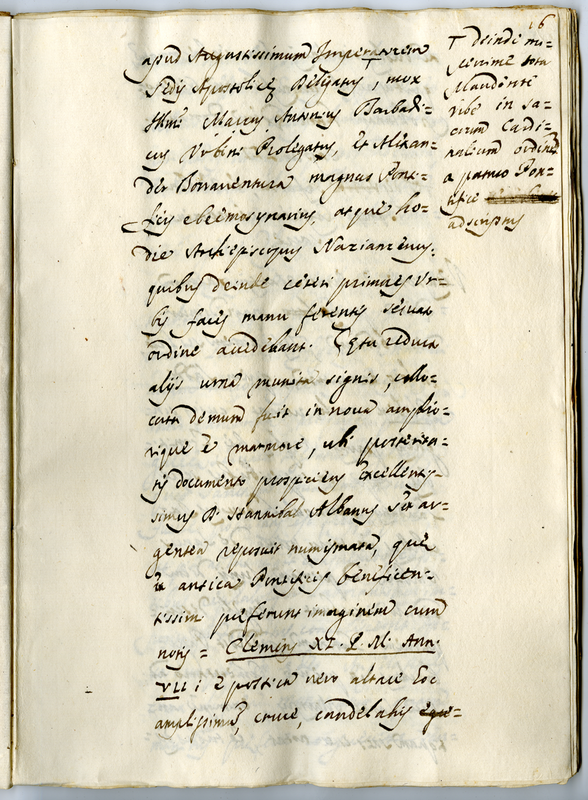 16
apud Augustissimum Imperatorem
Sedis Apostolicę Delegatus ⊤, mox
Illmi Marcus Antonius Barbadi-
cus Urbini Prolegatus, et Alexan-
der Bonaventura magnus Ponti-
ficis eleemosynarius, atque ho-
die Archiepiscopus Nazianzenus,
quibus deinde ceteri primores Ur-
bis faces manu ferentes servato
ordine accedebant. Capsa reducta
alijs urna munita signis, collo-
cata demum fuit in nova amplio-
rique è marmore, ubi posterita-
tis documento prospiciens Excellentis-
simus D. Hannibal Albanus sex ar-
gentea reposuit numismata, que
antica Pontificis beneficen-
tissimi preferunt imaginem cum
notis = Clemens XI. P. M. Ann.
VII; è postica vero altare hoc
amplissimum, cruce, candelabris
⊤ deinde nu-
cerrime tota
plaudente
Urbe in sa-
crum Cardi-
nalium ordinem
a patruo Pon-
tifice
adscriptus